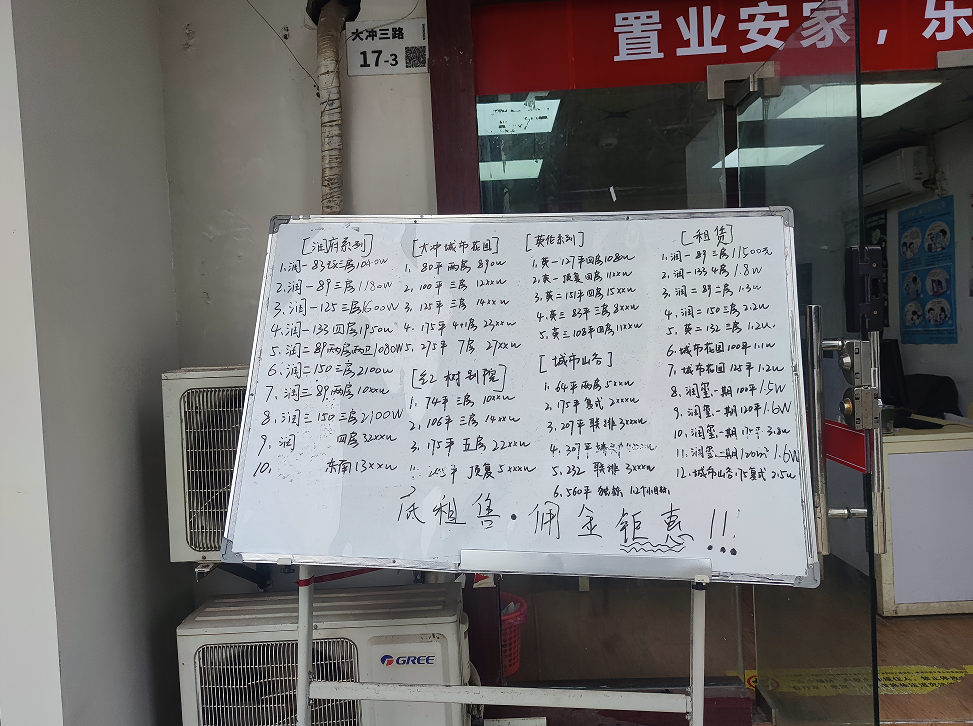 大冲三路
17-3
置业安家，东
[润府系列]
1. 润一83三房1040W
2. 润一89三房1180W
3. 润一125三房1600W
4. 润一133四房1950W
5. 润二89两房两卫1080W
6. 润二150三房2100W
7. 润三89两房10xxW
8. 润三150三房2100W
9. 润 四房32xxW
10. 东南13xxW
[大冲城市花园]
1. 80平两房890W
2. 100平三房12xxW
3. 125平三房14xxW
4. 175平4+1房23xxW
5. 275平7房27xxW
[红树别院]
1. 74平三房10xxW
2. 106平三房14xxW
3. 175平五房22xxW
平顶复5xxxW
[英伦系列]
1. 英一127平四房1080W
2. 英一顶复四房11xxW
3. 英二151平四房15xxW
4. 英三83平三房8xxW
5. 英三108平四房11xxW
[城市山谷]
1. 64平两房5xxW
2. 175平复式2xxxW
3. 207平联排3xxxW
4. 307平
5. 232联排3xxxW
6. 560平独栋1.2个小目标
[租赁]
1. 润一89三房11500元
2. 润一133 4房1.8W
3. 润二89二房1.3W
4. 润二150三房2.2W
5. 英二132三房1.2W
6. 城市花园100平1.1W
7. 城市花园125平1.2W
8. 润玺一期100平1.5W
9. 润玺一期120平1.6W
10. 润玺一期 3.8W
11. 润玺二期120m² 1.6W
12. 城市山谷175复式2.5W
租售·佣金钜惠!!!
GREE